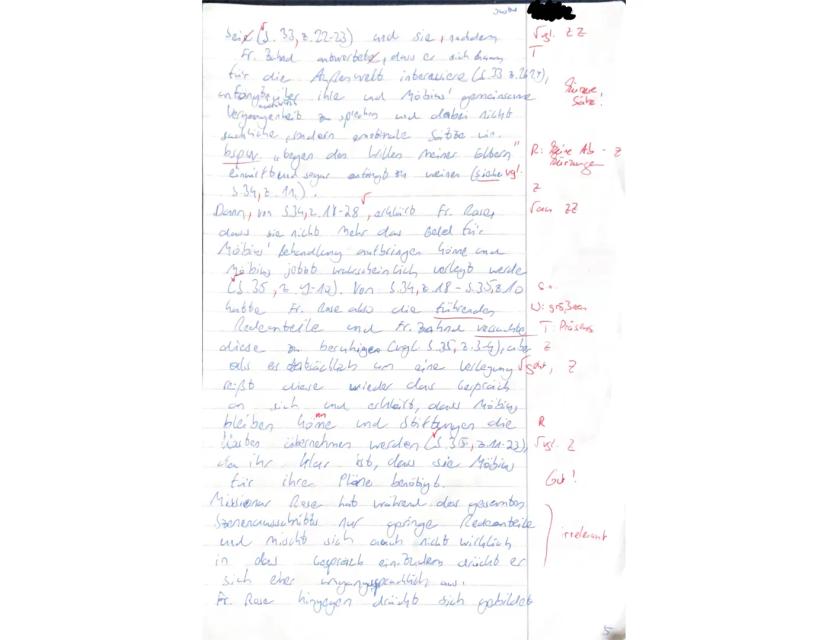 sei (S. 33, Z. 22-23) und sie, nachdem √ vgl. ZZ
Fr. Zahnd antwortete, dass er sich kaum T
für die Außenwelt interessiere (S. 33 Z. 26-27),
anfängt über ihre und Möbius' gemeinsame Kürzere
Vergangenheit zu sprechen und dabei nicht Sätze!
sachliche, sondern emotionale Sätze wie
bspw. "Gegen den Willen meiner Eltern" R: Keine Ab- Z
einwirft und sogar anfängt zu weinen (siehe vgl. kürzungen
S. 34, Z. 11). Z
Dann, von S. 34, Z. 18-28, erklärt Fr. Rose, √ ZZ
dass sie nicht mehr das Geld für
Möbius' Behandlung aufbringen könne und
Möbius jetzt wahrscheinlich verlegt werde
(S. 35, Z. 9-10). Von S. 34, Z. 18 - S. 35, Z. 10
hatte Fr. Rose also die führenden W: größeren
Redeanteile und Fr. Zahnd versuchte T: Präsens
diese zu beruhigen (vgl. S. 35, Z. 3-4), aber Z
als es tatsächlich um eine Verlegung √ geht, Z
reißt diese wieder das Gespräch
an sich und erklärt, dass Möbius
bleiben könne und Stiftungen die R
Kosten übernehmen werden (S. 35, Z. 11-23), √ vgl. Z
da ihr klar ist, dass sie Möbius
für ihre Pläne benötigt. Gut!
Missionar Rose hat während des gesamten
Szenenausschnitts nur geringe Redeanteile
und mischt sich auch nicht wirklich irrelevant
in das Gespräch ein. Zudem drückt er
sich eher umgangssprachlich aus.
Fr. Rose hingegen drückt sich gebildet
5